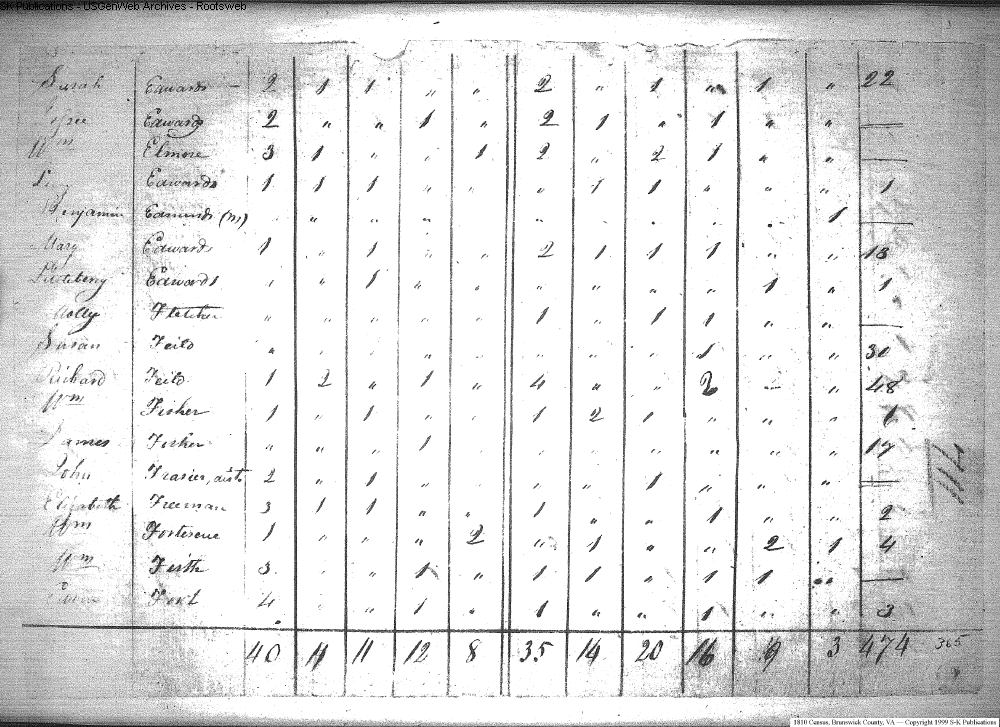 S-K Publications - USGenWeb Archives - Rootsweb
Sarah Edwards - 2 1 1 " " 2 " 1 " 1 " 22
Edwards 2 " " 1 " 2 1 " 1 " " —
Wm Elmore 3 1 " " 1 2 " 2 1 " " —
Edwards 1 1 1 " " " 1 1 " " " 1
Benjamin Edmunds (m) " " " " " " " " " 1 —
Mary Edwards 1 " 1 " " 2 1 1 1 " " 13
Littleberry Edwards " " 1 " " " " " " 1 " 1
Polly Fletcher " " " " " 1 " 1 1 " " —
Susan Feild " " " " " " " " 1 " " 30
Richard Feild 1 2 " 1 " 4 " " 2 " " 48
Wm Fisher 1 " 1 " " 1 2 1 " " " 1
James Fisher " " " 1 " " " " " " " 17
John Frasier, dist 2 " 1 " " " " 1 " " " —
Elizabeth Freeman 3 1 1 " " 1 " " 1 " " 2
Wm Fortescue 1 " " " 2 " 1 " " 2 1 4
Wm Firth 3 " " 1 " 1 1 " 1 1 " —
Fort 4 " " 1 " 1 " " 1 " " 3
40 11 11 12 8 35 14 20 16 9 3 474 365
1810 Census, Brunswick County, VA — Copyright 1999 S-K Publications